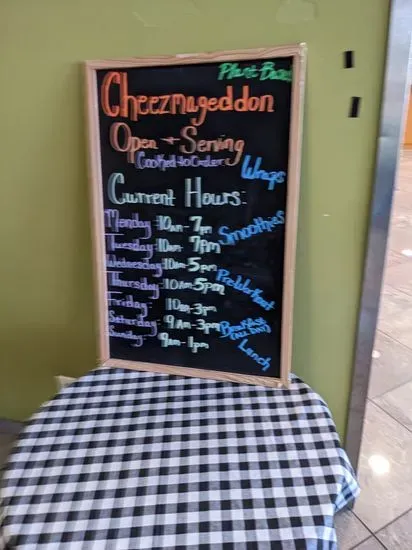 Plant Based
Cheezmageddon
Open + Serving
Cooked to Order
Wraps
Current Hours:
Monday: 10am-7pm
Smoothies
Tuesday: 10am-7pm
Wednesday: 10am-5pm
Thursday: 10am-5pm
PreWorkout
Friday: 10am-3pm
Saturday: 9am-3pm
Breakfast
(ALL DAY)
Sunday: 9am-1pm
Lunch